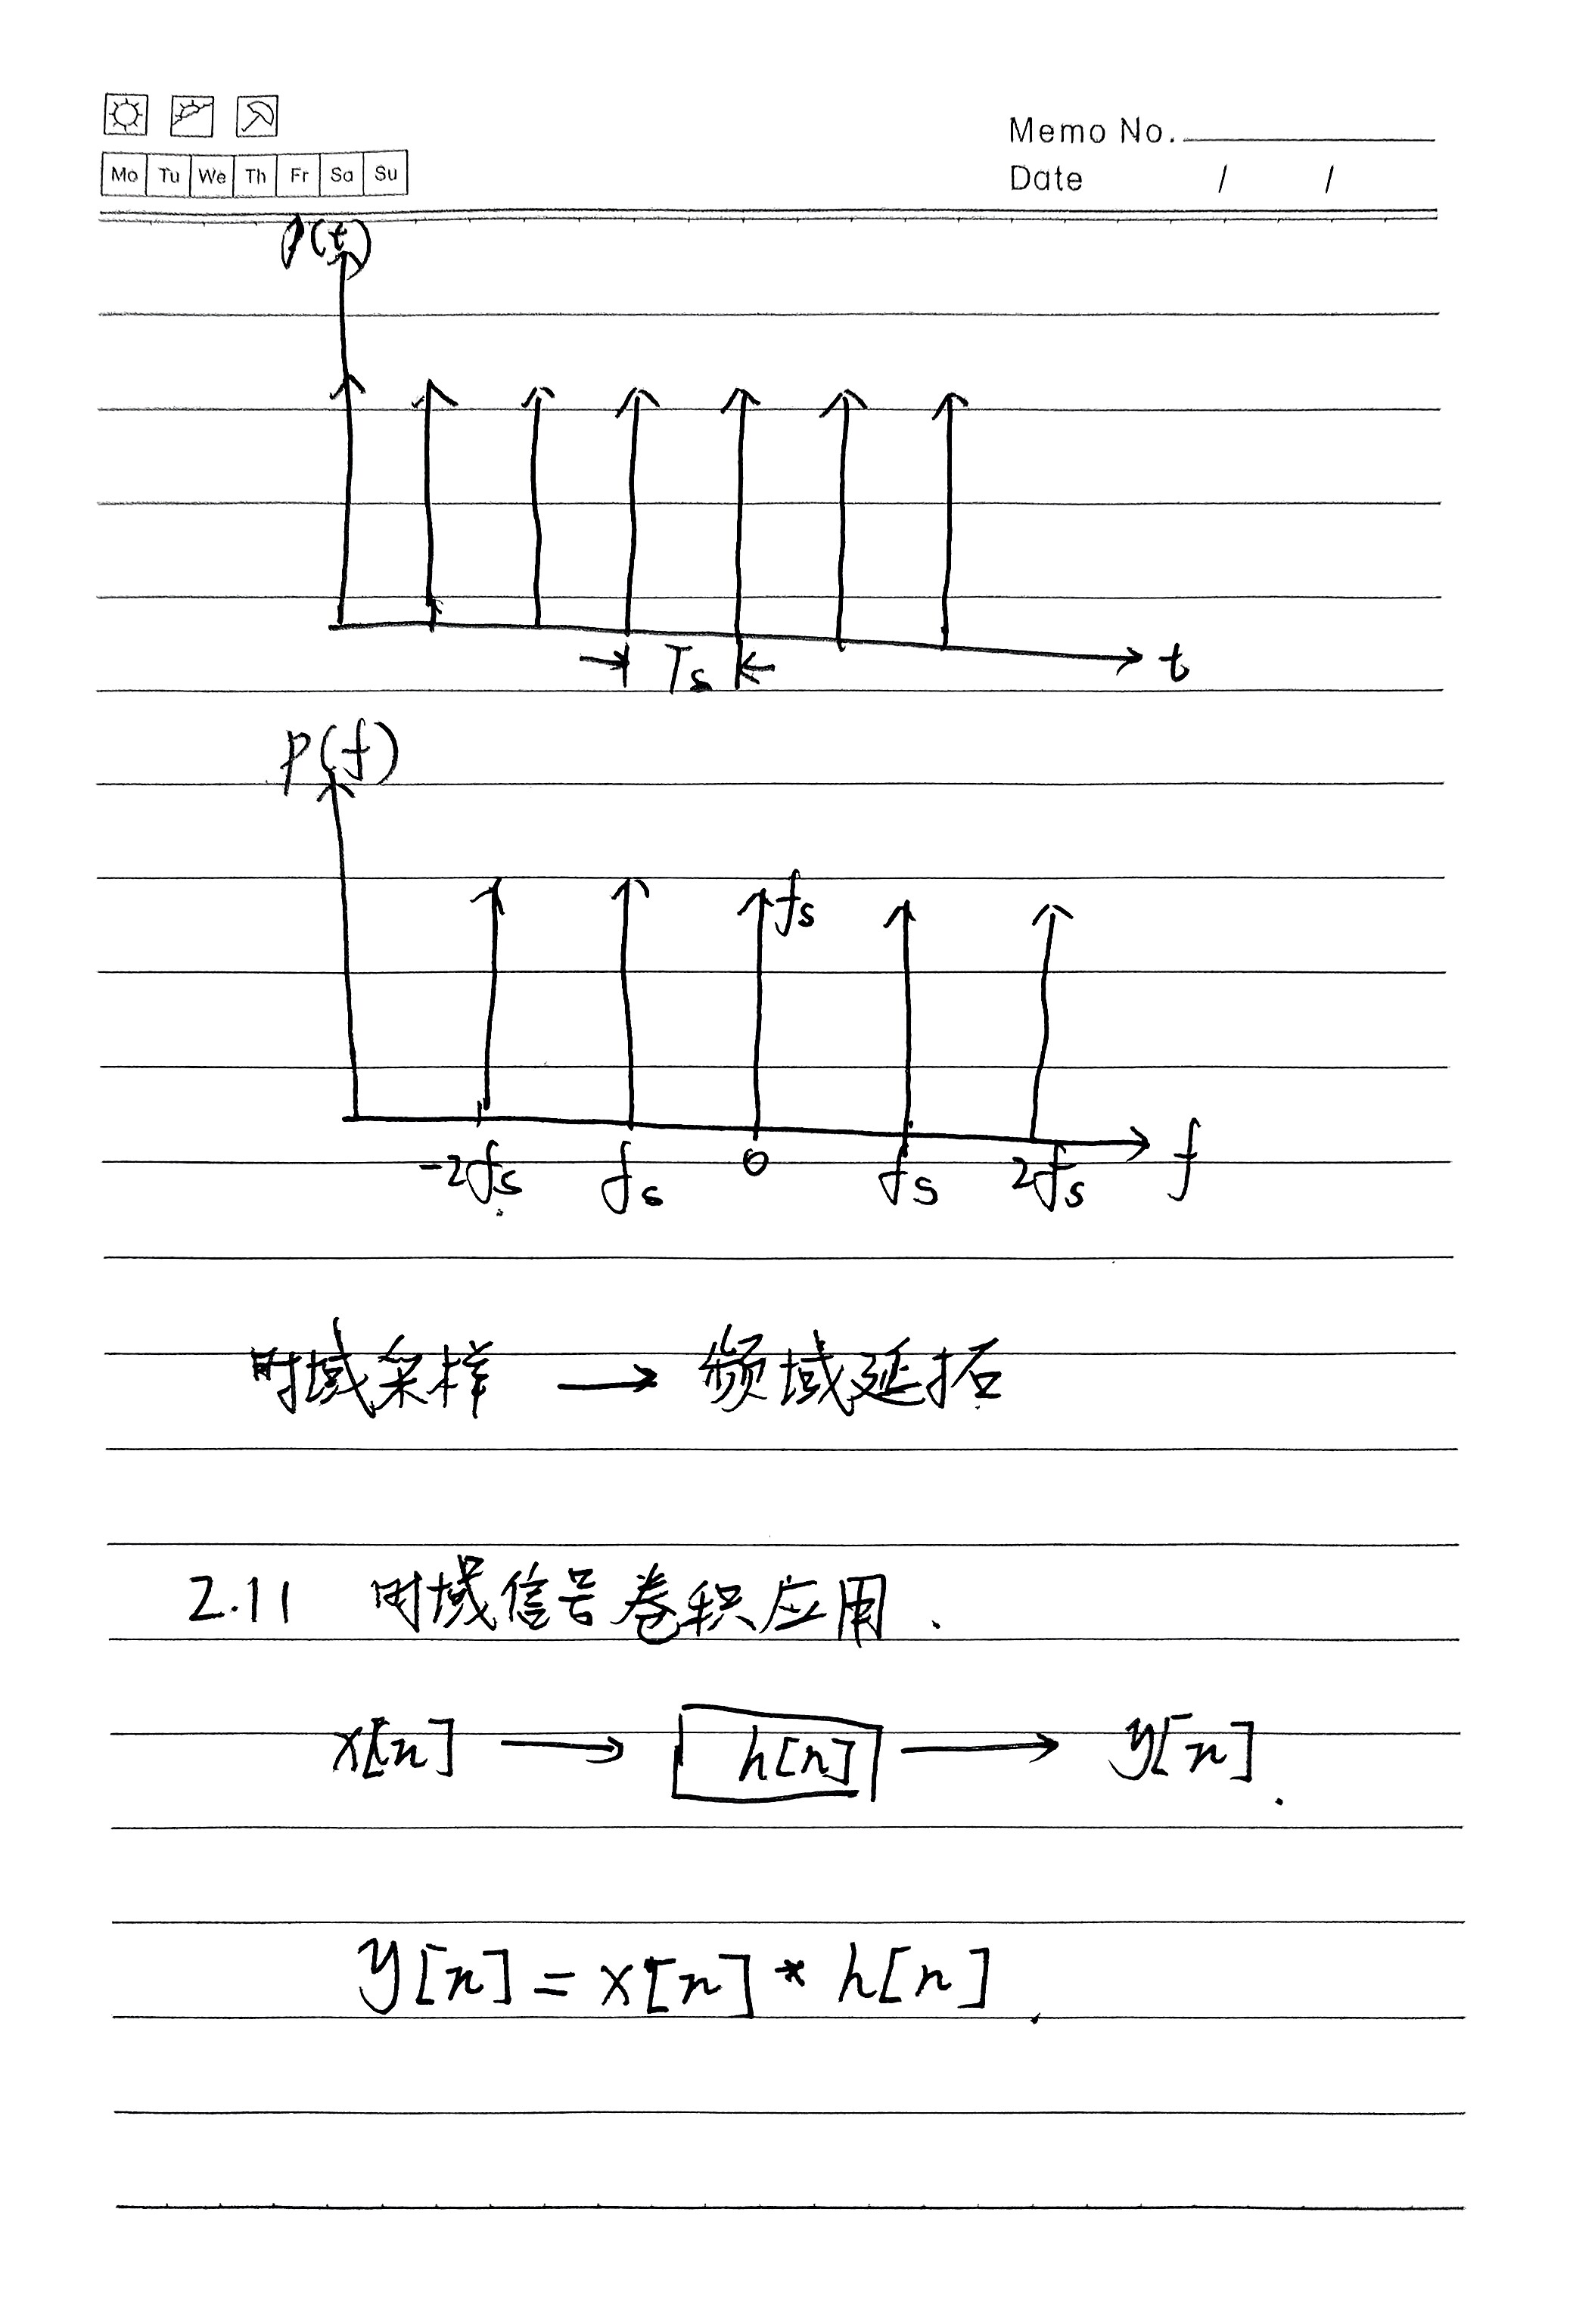 Memo No.
Mo Tu We Th Fr Sa Su
Date / /
p(t)
Ts
t
p(f)
fs
-2fs fs 0 fs 2fs f
时域采样 → 频域延拓
2.11 时域信号卷积应用.
x[n] → h[n] → y[n].
y[n] = x[n] * h[n].